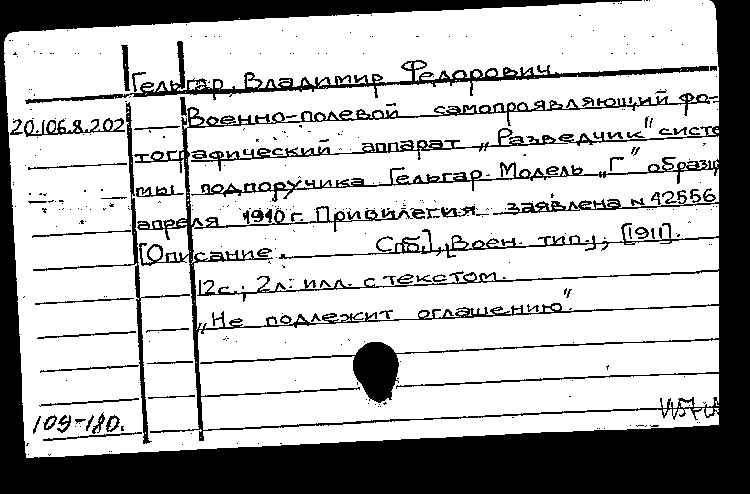 Гельгар, Владимир Федорович.
20.106.8.202 Военно-полевой самопроявляющий фо-
тографический аппарат „Разведчик" систе
мы подпоручика Гельгар. Модель „Г" образц
апреля 1910 г. Привилегия заявлена № 42556
[Описание. Спб.], [Воен. тип.], [1911].
12 с.; 2 л. илл. с текстом.
„Не подлежит оглашению".
109-180.